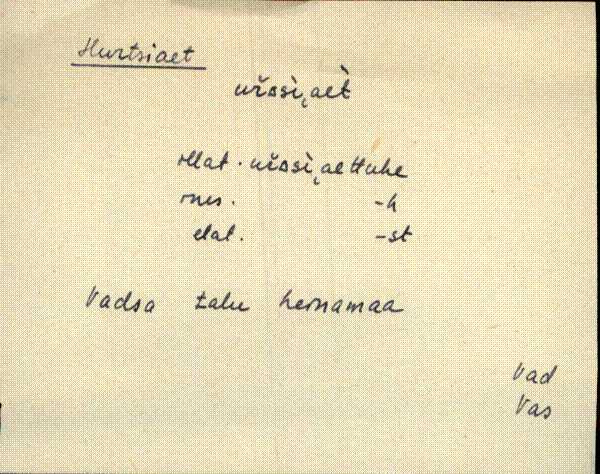 Hurtsiaet
uŕssì,aèt̀
illat. uŕssì,aettuhe
ines. -h
elat. -st
Vadsa talu heinamaa
Vad
Vas